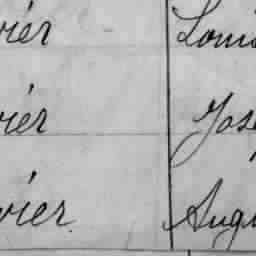 vier Louis
vier Jose
vier Augu